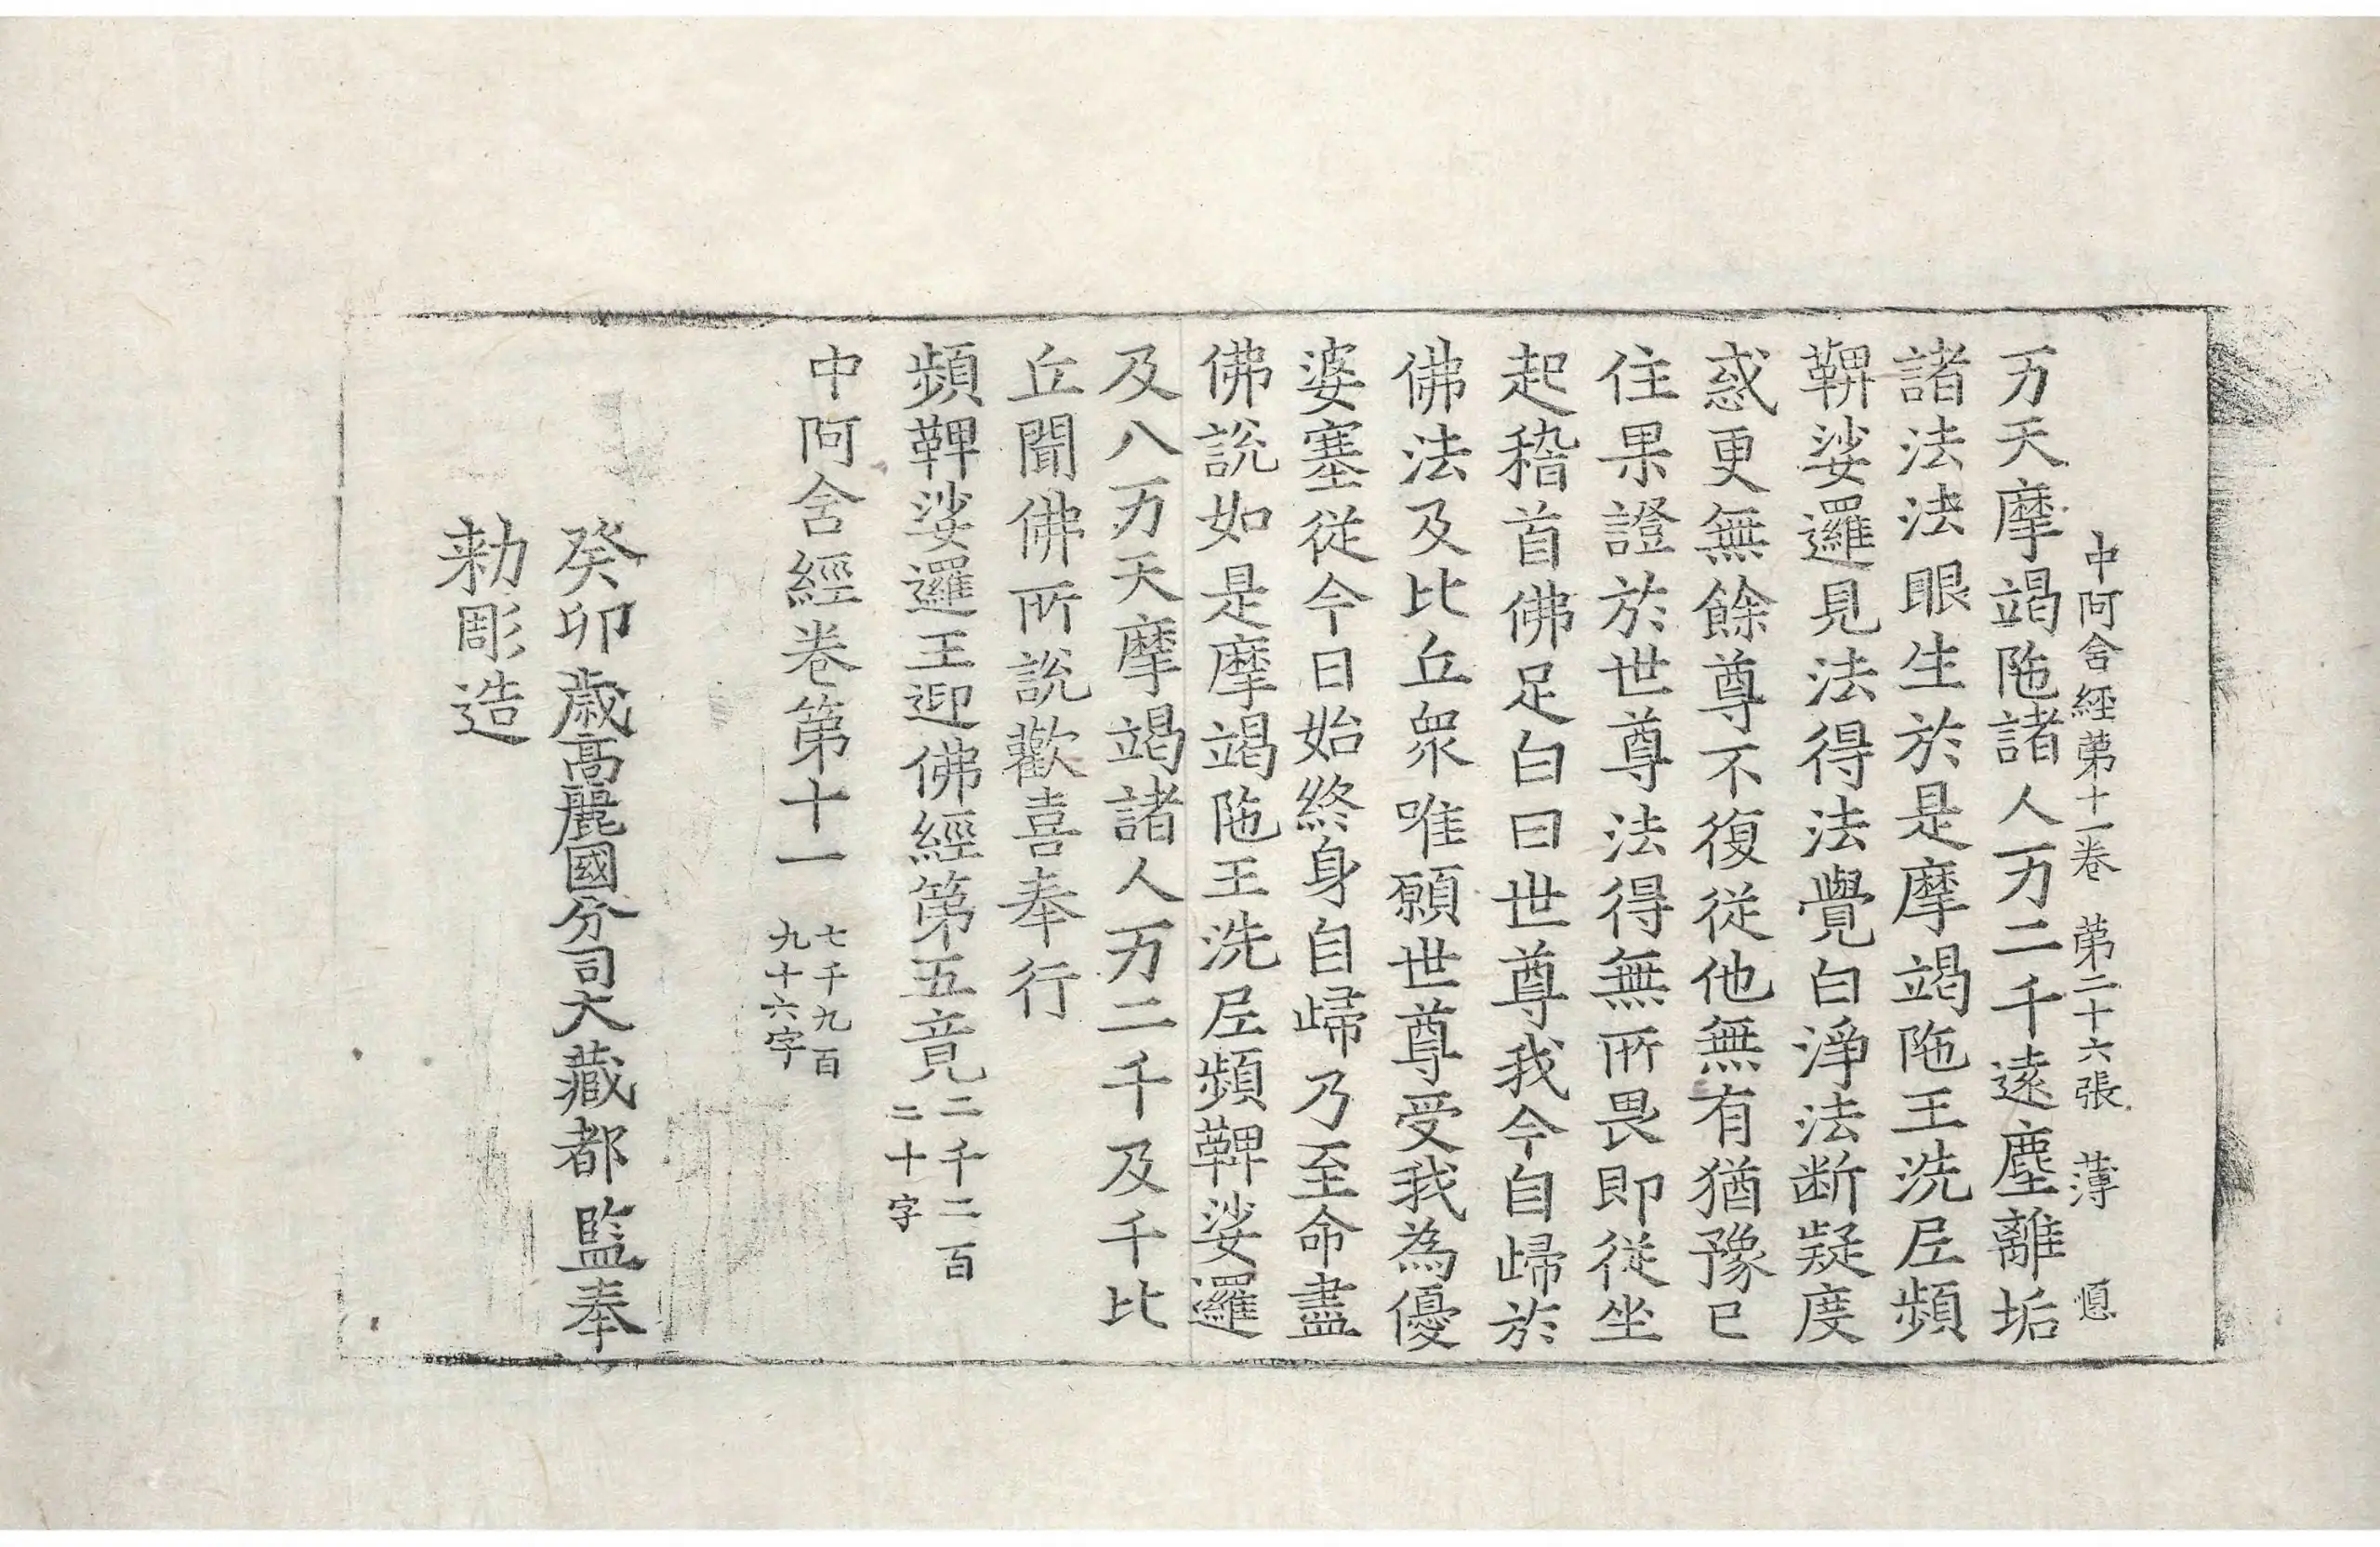 中阿含經第十一卷 第二十六張 薄
万天摩竭陁諸人万二千遠塵離垢
諸法法眼生於是摩竭陁王洗𡰱頻
鞞娑邏見法得法覺白淨法断疑度
惑更無餘尊不復從他無有猶豫已
住果證於世尊法得無所畏即從坐
起稽首佛足白曰世尊我今自歸於
佛法及比丘衆唯願世尊受我為優
婆塞從今日始終身自歸乃至命盡
佛說如是摩竭陁王洗𡰱頻鞞娑邏
及八万天摩竭諸人万二千及千比
丘聞佛所說歡喜奉行
頻鞞娑邏王迎佛經第五竟 二千二百
二十字
中阿含經卷第十一 七千九百
九十六字
癸卯歳高麗國分司大藏都監奉
勑彫造